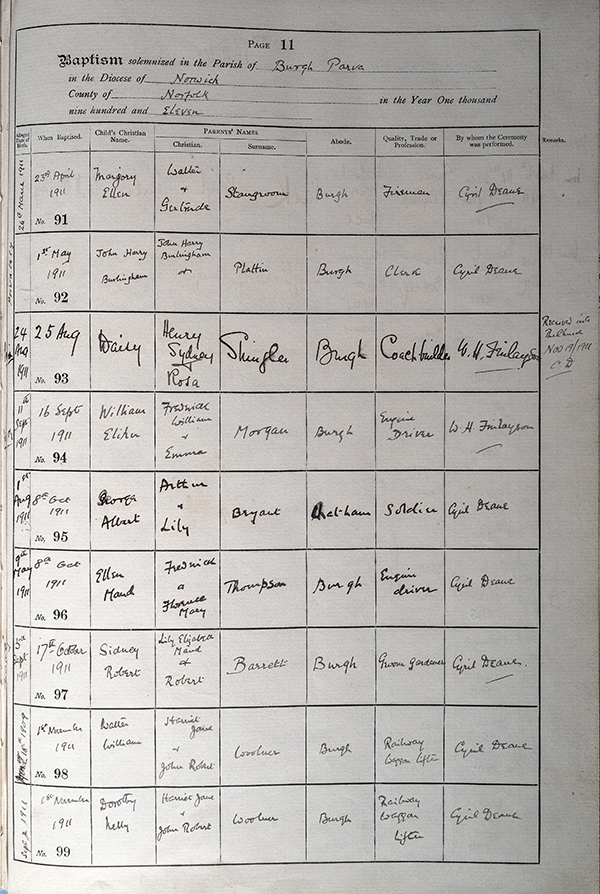 PAGE 11
Baptism solemnized in the Parish of Burgh Parva
in the Diocese of Norwich
County of Norfolk in the Year One thousand
nine hundred and Eleven
When Baptised. Child's Christian Name. PARENTS' NAMES Christian. Surname. Abode. Quality, Trade or Profession. By whom the Ceremony was performed. Remarks.
23rd April Marjory Walter
1911 Ellen + Stangroom Burgh Fireman Cyril Deane
No. 91 Gertrude
1st May John Harry John Harry
1911 Burlingham Burlingham + Plattin Burgh Clerk Cyril Deane
No. 92
24 Aug 1911 25 Aug Daisy Henry Sydney Shingler Burgh Coachbuilder W. H. Finlayson Received into
No. 93 Rosa Nov 19/1911
C D
11th Sept 1911 16 Sept William Frederick William Engine
1911 + Morgan Burgh Driver W. H. Finlayson
No. 94 Emma
1st Aug 1911 8th Oct George Arthur
1911 Albert + Bryant Chatham Soldier Cyril Deane
No. 95 Lily
9th May 1911 8th Oct Ellen Frederick Engine
1911 Maud & Thompson Burgh driver Cyril Deane
No. 96 Florence Mary
Sept 1911 17th October Sidney Lily Elizabeth Maud
1911 Robert + Barrett Burgh Groom gardener Cyril Deane.
No. 97 Robert
1909 1st November Walter Harriet Jane Railway
1911 William + Woolner Burgh Waggon lifter Cyril Deane
No. 98 John Robert
Sept 2 1911 1st November Dorothy Harriet Jane Railway
1911 Nelly + Woolner Burgh Waggon Cyril Deane
No. 99 John Robert Lifter